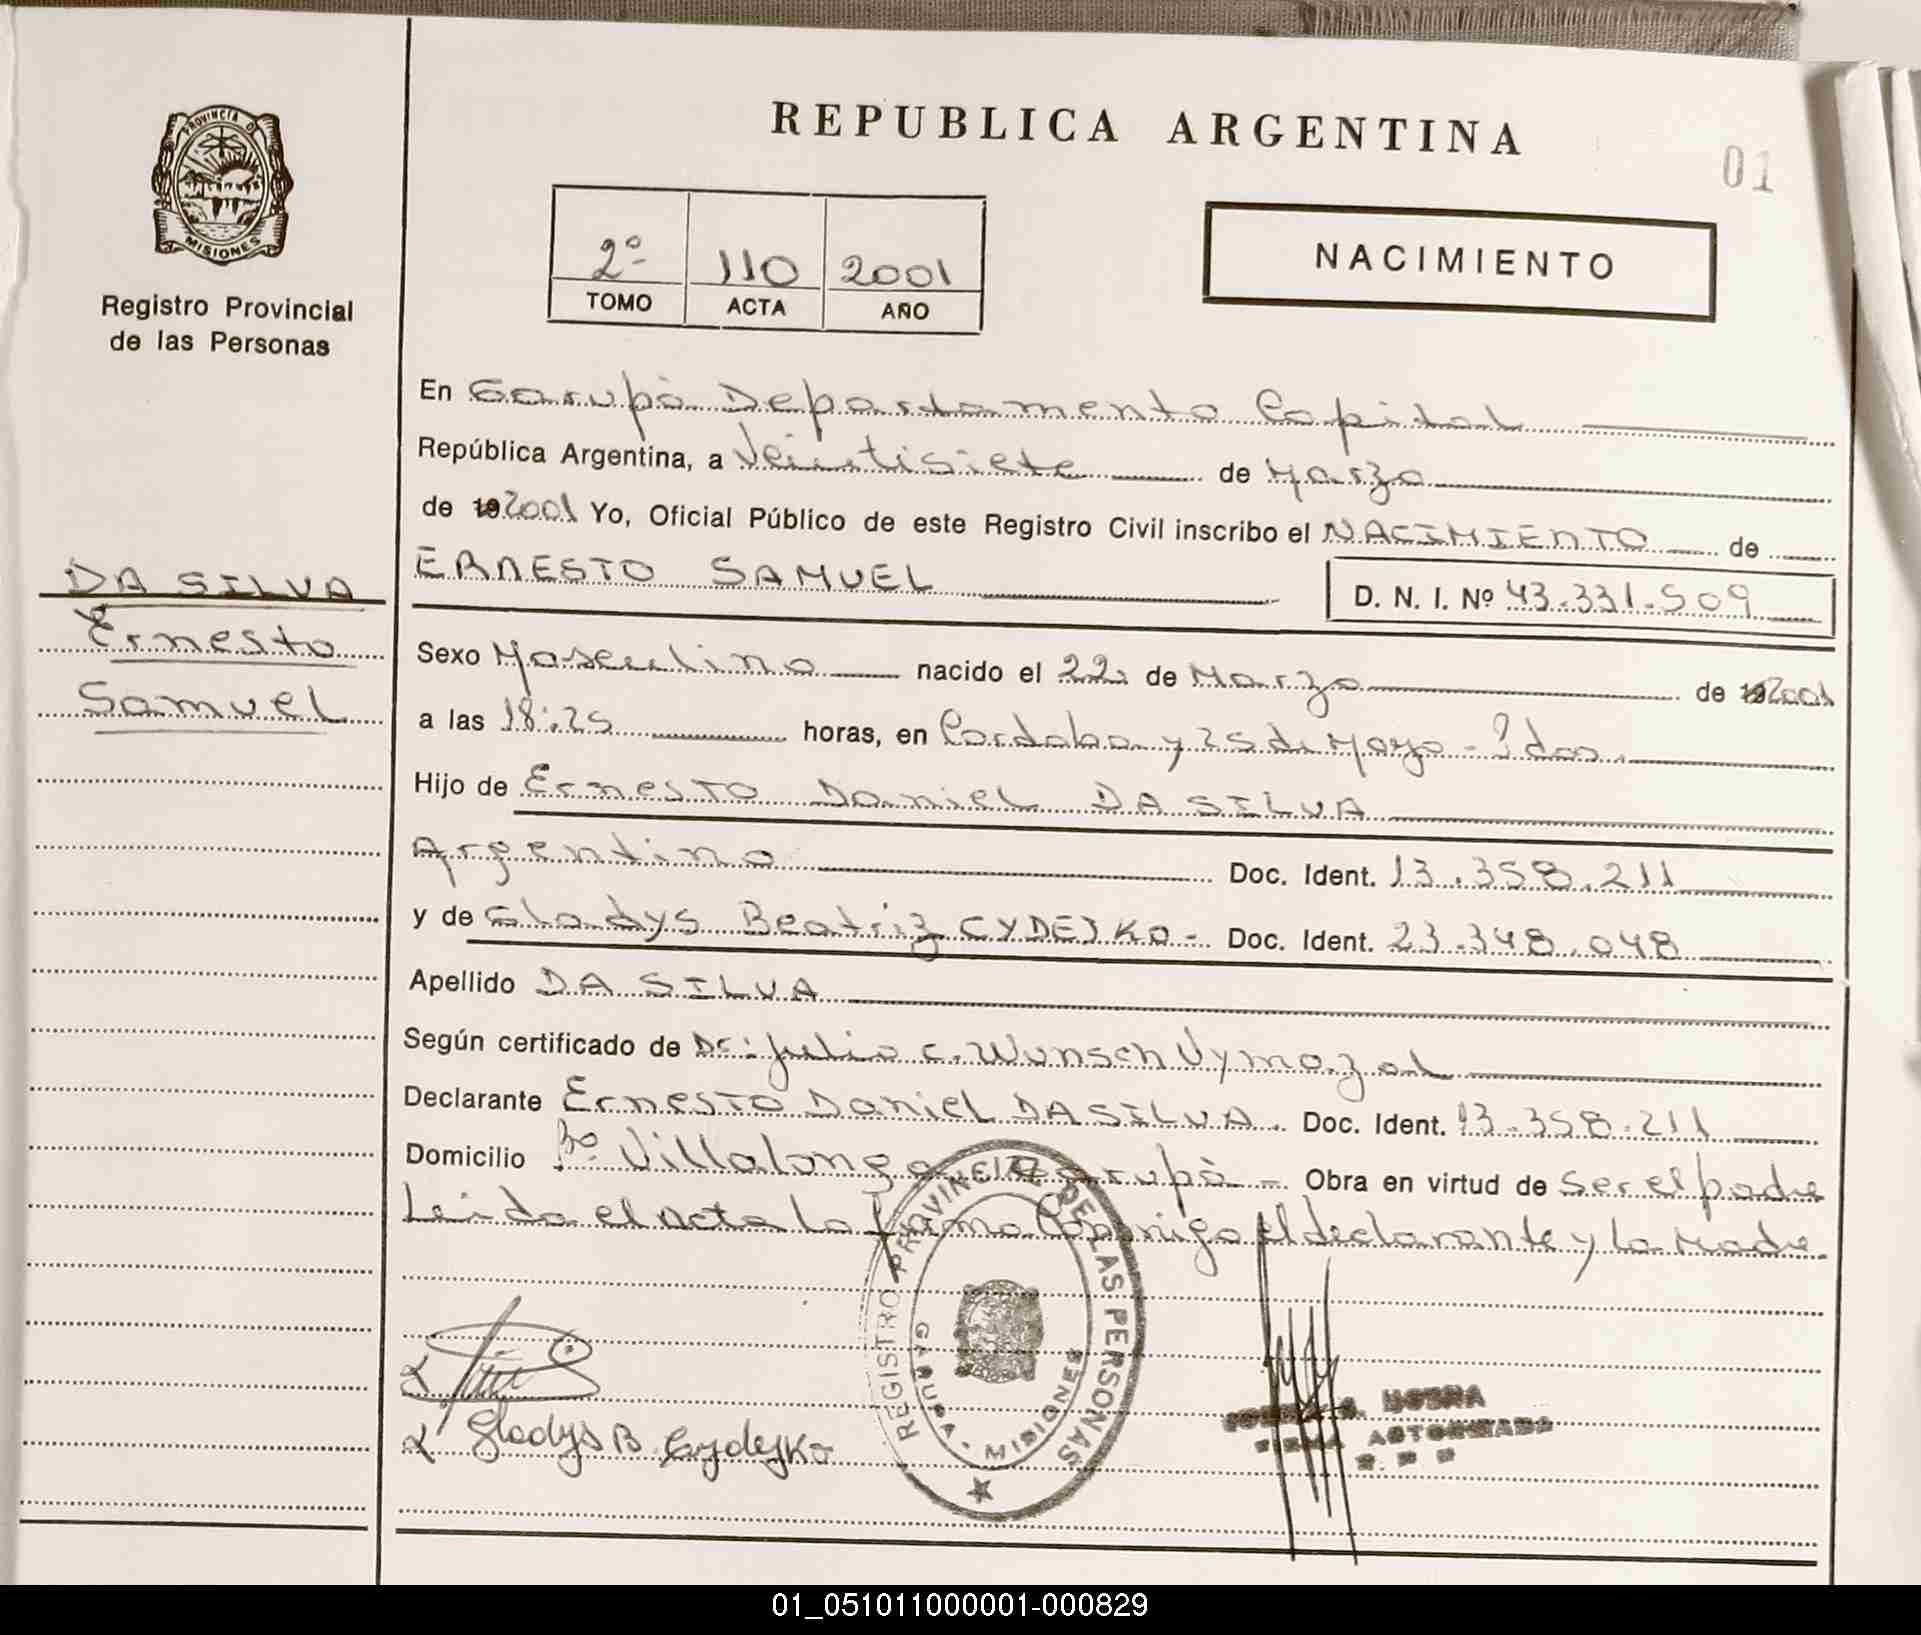 PROVINCIA DE
MISIONES
Registro Provincial
de las Personas
DA SILVA
Ernesto
Samuel
REPUBLICA ARGENTINA
01
2º 110 2001
TOMO ACTA AÑO
NACIMIENTO
En Garupà Departamento Capital
República Argentina, a Veintisiete de Marzo
de 192001 Yo, Oficial Público de este Registro Civil inscribo el NACIMIENTO de
ERNESTO SAMUEL D. N. I. Nº 43.331.509
Sexo Masculino nacido el 22 de Marzo de 192001
a las 18:25 horas, en Cordoba y 25 de Mayo - Pdas.
Hijo de Ernesto Daniel DA SILVA
Argentino Doc. Ident. 13.358.211
y de Gladys Beatriz CYDEJKO - Doc. Ident. 23.348.048
Apellido DA SILVA
Según certificado de Dr: Julio C. Wunsch Vymazal
Declarante Ernesto Daniel DA SILVA. Doc. Ident. 13.358.211
Domicilio Bº Villalonga Garupà - Obra en virtud de ser el padre
Leida el acta la firma Conmigo el declarante y la Madre.
REGISTRO PROVINCIAL DE LAS PERSONAS
GARUPA - MISIONES
Gladys B. Cydejko
01_051011000001-000829